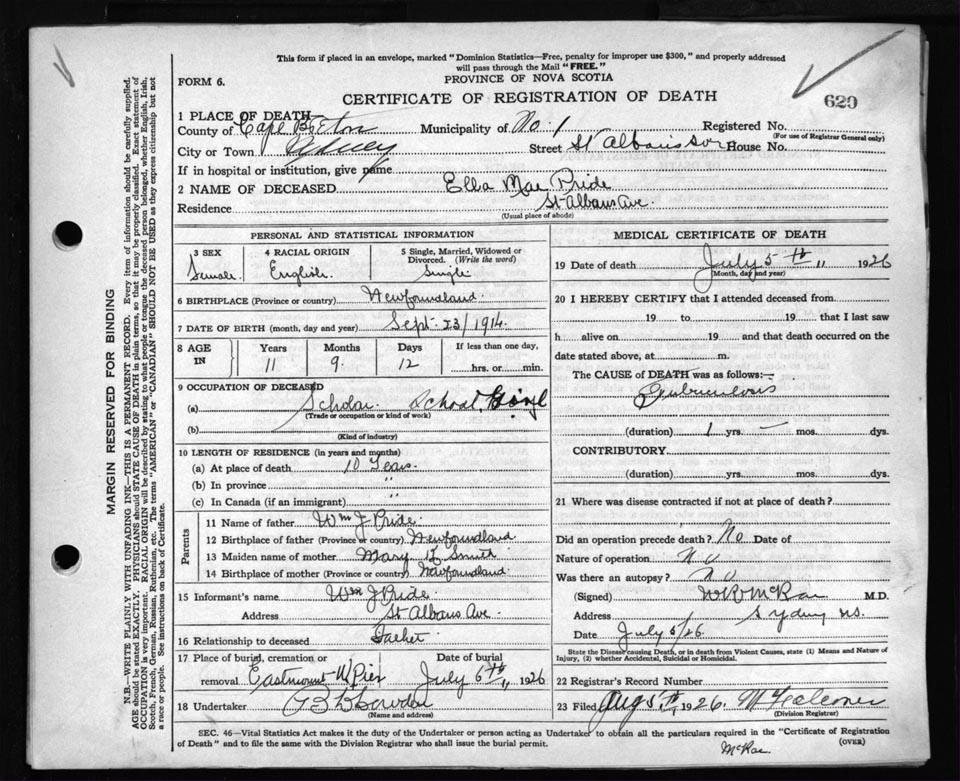 This form if placed in an envelope, marked "Dominion Statistics—Free, penalty for improper use $300," and properly addressed
will pass through the Mail "FREE."
FORM 6.
PROVINCE OF NOVA SCOTIA
CERTIFICATE OF REGISTRATION OF DEATH
620
1 PLACE OF DEATH
County of Cape Breton Municipality of No. 1 Registered No.
(For use of Registrar General only)
City or Town Sydney Street St Albans House No.
If in hospital or institution, give name
2 NAME OF DECEASED Ella Mae Pride
Residence St Albans Ave.
(Usual place of abode)
PERSONAL AND STATISTICAL INFORMATION
3 SEX 4 RACIAL ORIGIN 5 Single, Married, Widowed or
Divorced. (Write the word)
Female English Single
6 BIRTHPLACE (Province or country) Newfoundland
7 DATE OF BIRTH (month, day and year) Sept. 23/1914.
8 AGE IN Years Months Days If less than one day,
11 9. 12 hrs. or min.
9 OCCUPATION OF DECEASED
(a) Scholar School Girl
(Trade or occupation or kind of work)
(b)
(Kind of industry)
10 LENGTH OF RESIDENCE (in years and months)
(a) At place of death 10 Years
(b) In province "
(c) In Canada (if an immigrant) "
Parents
11 Name of father Wm J Pride
12 Birthplace of father (Province or country) Newfoundland
13 Maiden name of mother Mary Smith
14 Birthplace of mother (Province or country) Newfoundland
15 Informant's name Wm J Pride
Address St Albans Ave
16 Relationship to deceased Father
17 Place of burial, cremation or Date of burial
removal Eastmount W Pier July 6th 1926
18 Undertaker
(Name and address)
MEDICAL CERTIFICATE OF DEATH
19 Date of death July 5th 1926
(Month, day and year)
20 I HEREBY CERTIFY that I attended deceased from
19 to 19 that I last saw
h alive on 19 and that death occurred on the
date stated above, at m.
The CAUSE of DEATH was as follows:—
Tuberculosis
(duration) 1 yrs. — mos. dys.
CONTRIBUTORY
(duration) yrs. mos. dys.
21 Where was disease contracted if not at place of death?
Did an operation precede death? No Date of
Nature of operation No
Was there an autopsy? No
(Signed) McRae M.D.
Address Sydney N.S.
Date July 5/26
State the Disease causing Death, or in death from Violent Causes, state (1) Means and Nature of
Injury, (2) whether Accidental, Suicidal or Homicidal.
22 Registrar's Record Number
23 Filed Aug 5th 1926.
(Division Registrar)
SEC. 46—Vital Statistics Act makes it the duty of the Undertaker or person acting as Undertaker to obtain all the particulars required in the "Certificate of Registration
of Death" and to file the same with the Division Registrar who shall issue the burial permit.
(OVER)
McRae
MARGIN RESERVED FOR BINDING
N.B.—WRITE PLAINLY WITH UNFADING INK—THIS IS A PERMANENT RECORD. Every item of information should be carefully supplied.
AGE should be stated EXACTLY. PHYSICIANS should STATE CAUSE OF DEATH in plain terms, so that it may be properly classified. Exact statement of
OCCUPATION is very important. RACIAL ORIGIN will be described by stating to what people or tongue the deceased person belonged, whether English, Irish,
Scotch, French, German, Russian, Ruthenian, etc. The terms "AMERICAN" or "CANADIAN" SHOULD NOT BE USED as they express citizenship but not
a race or people. See instructions on back of Certificate.